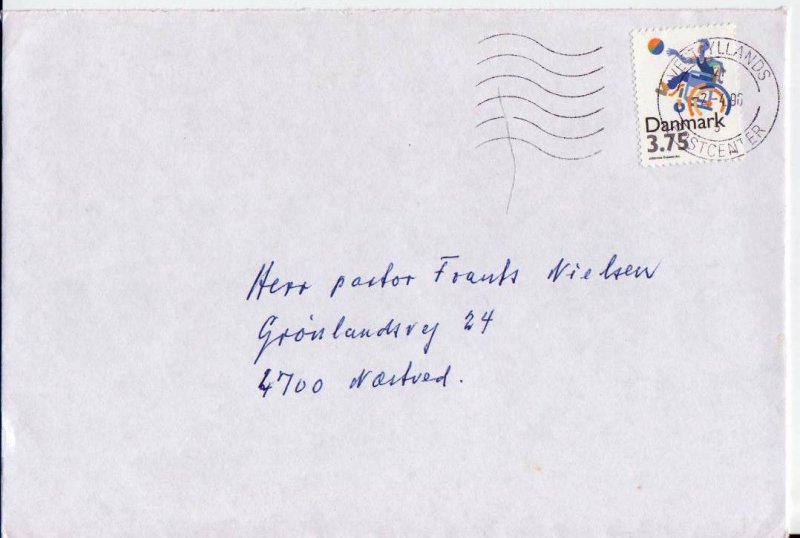 VESTJYLLANDS
2-4.96
POSTCENTER
Danmark
3.75
Herr pastor Frants Nielsen
Grönlandsvej 24
4700 Næstved.